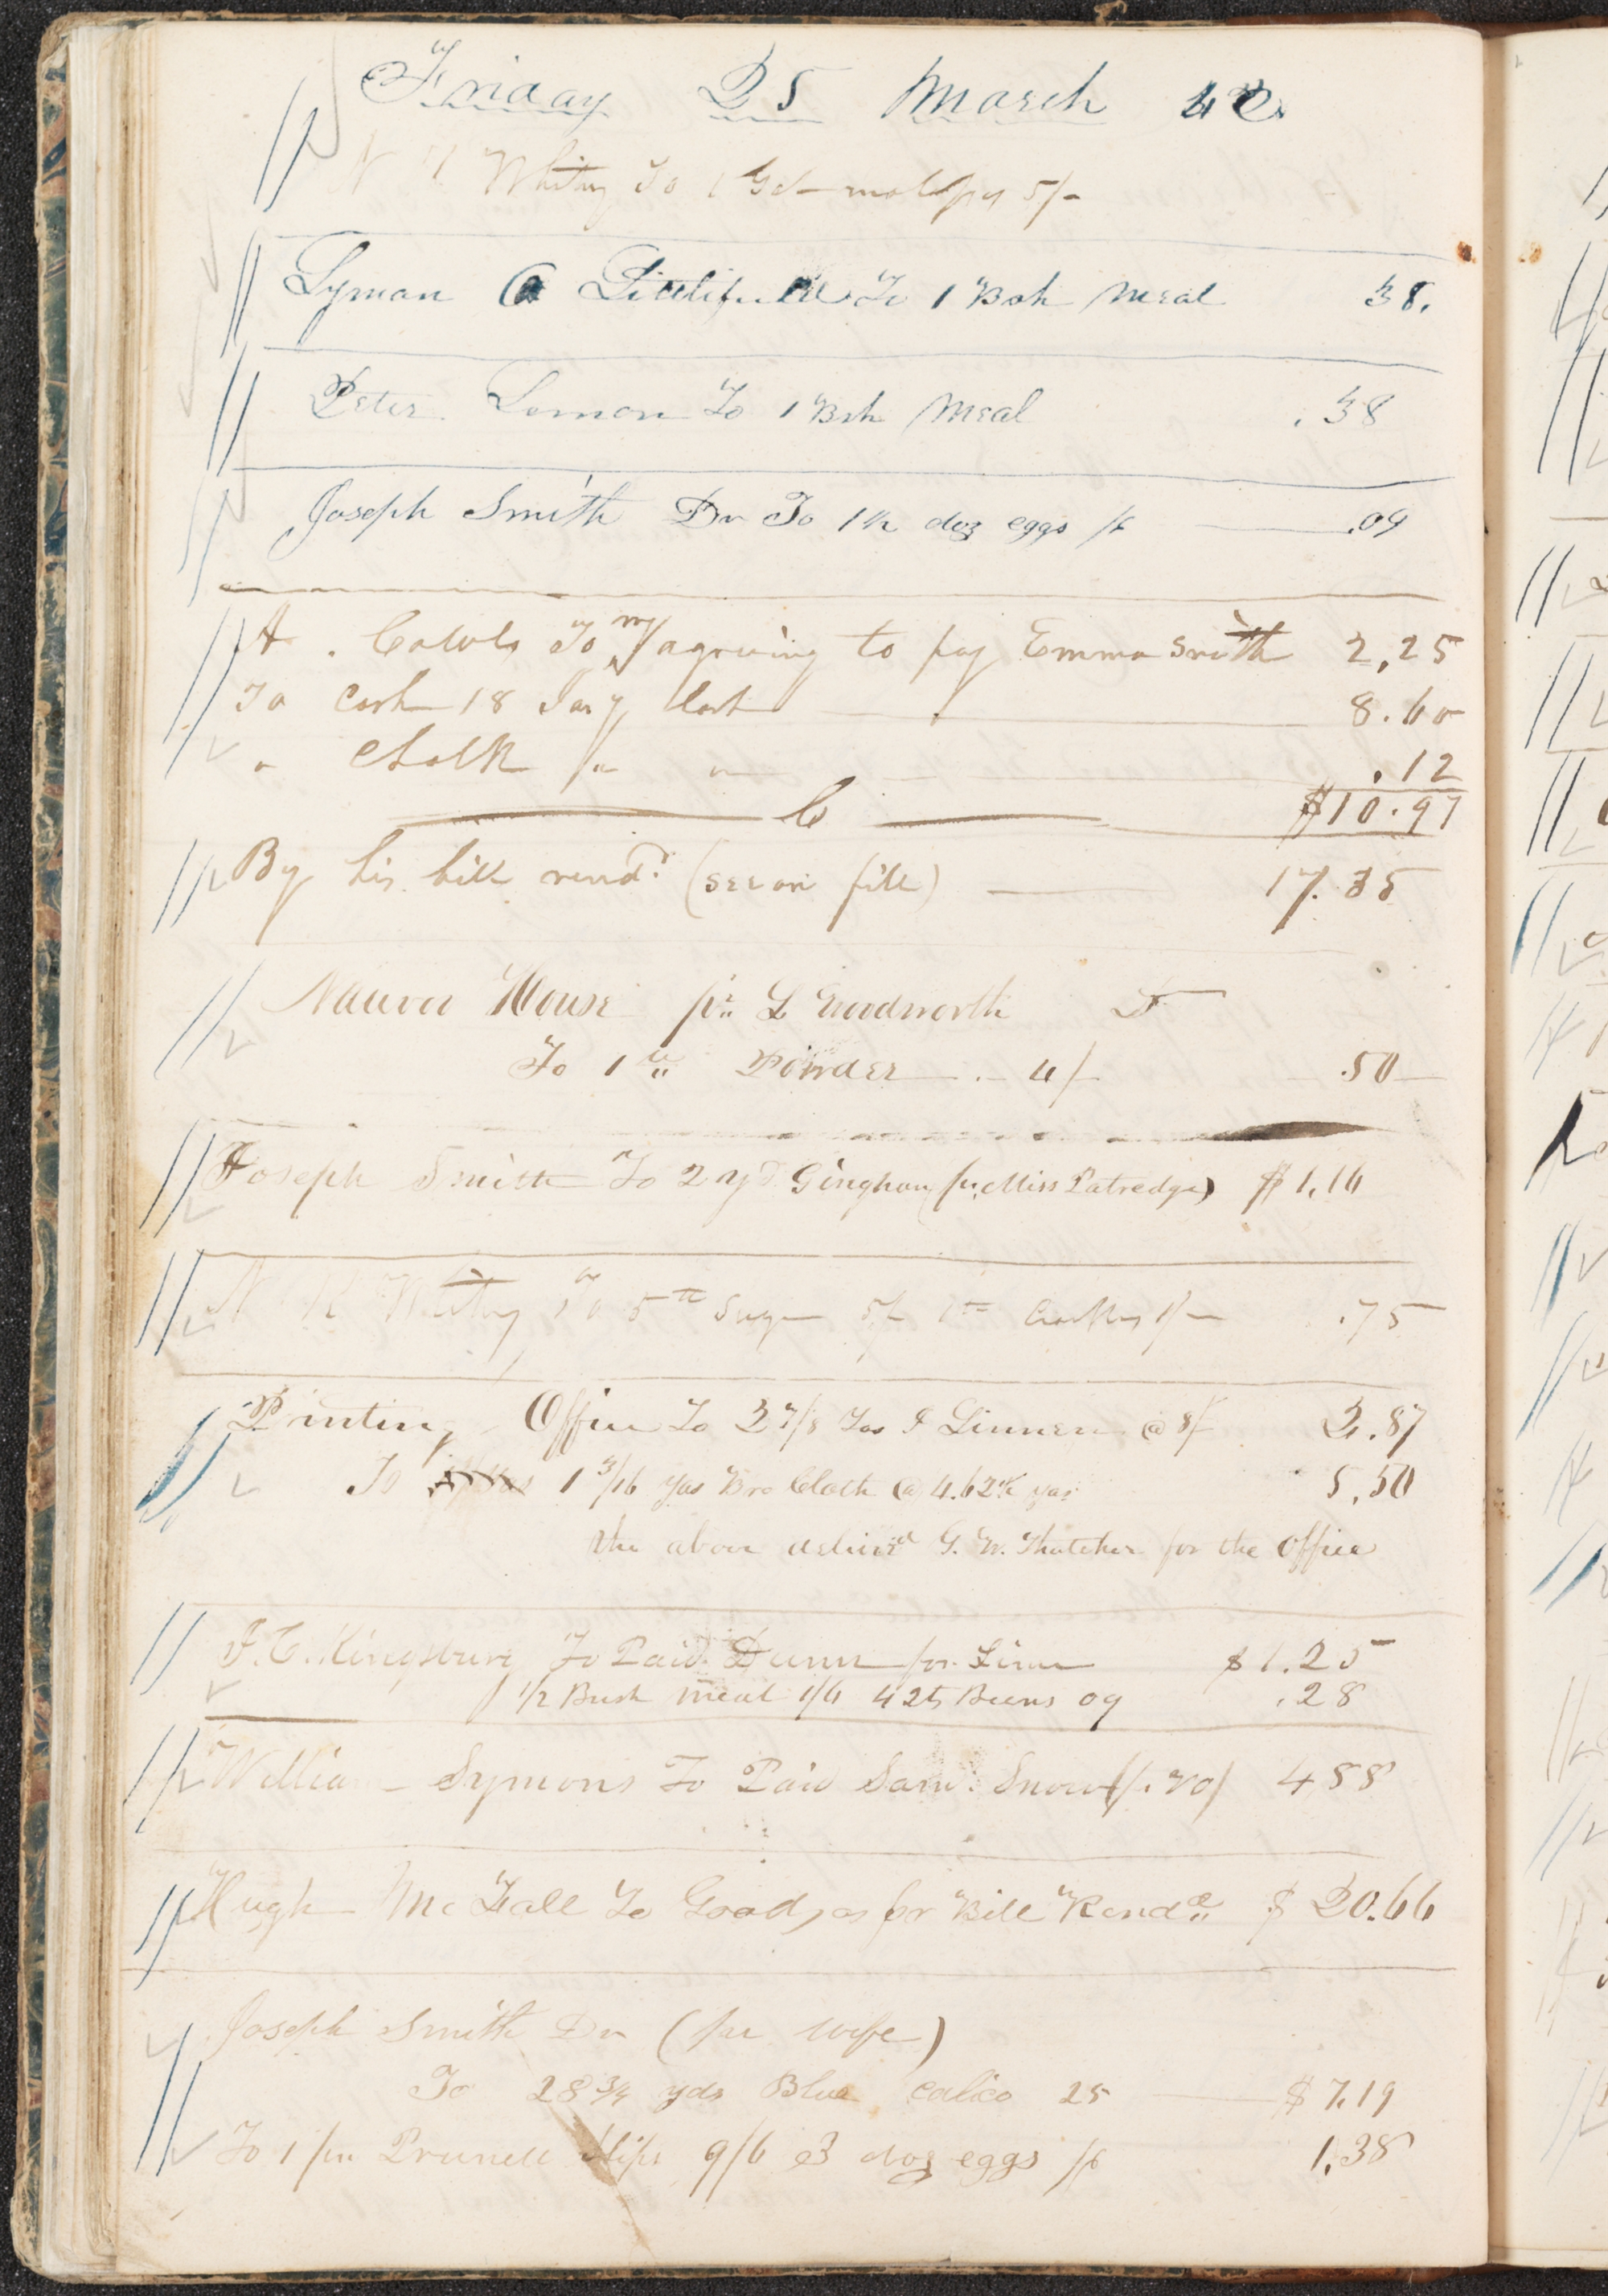 Friday 25 March 42
N K Whitney To 1 Gal molasses 5/-
Lyman A Littlefield To 1 Bsh Meal 38.
Peter Lemon To 1 Bsh Meal .38
Joseph Smith Dr To 1 1/2 doz eggs /6 .09
A. Cowls To my agreeing to pay Emma Smith 2,25
To Cash 18 Jany last 8.60
" Chalk .12
C $10.97
By his bill rend. (see on file) 17.35
Nauvoo House pr L Woodworth Dr
To 1 lb Powder 4/- .50
Joseph Smith To 2 yd Gingham (pr Miss Patredge) $1,16
N K Whitney To 5 lb Sugar 5/- 1 lb 1/- .75
Printing Office To 3 7/8 Yds I Linnen @ 8/ 3.87
To 1 3/16 yds Bro Cloth @ 4.62 1/2 yd 5,50
the above deliver'd G. W. Thatcher for the Office
J. C. Kingsbury To Paid Dunn for Lime $1.25
1/2 Bush meal 1/6 4 lb Beens 09 .28
William Symons To Paid Saml. Snow 4 88
Hugh Mc Fall To Goods as pr Bill Rend $20.66
Joseph Smith Dr (pr wife)
To 28 3/4 yds Blue calico 25 $7,19
To 1 pr Prunell slips 9/6 & 3 doz eggs /6 1,38